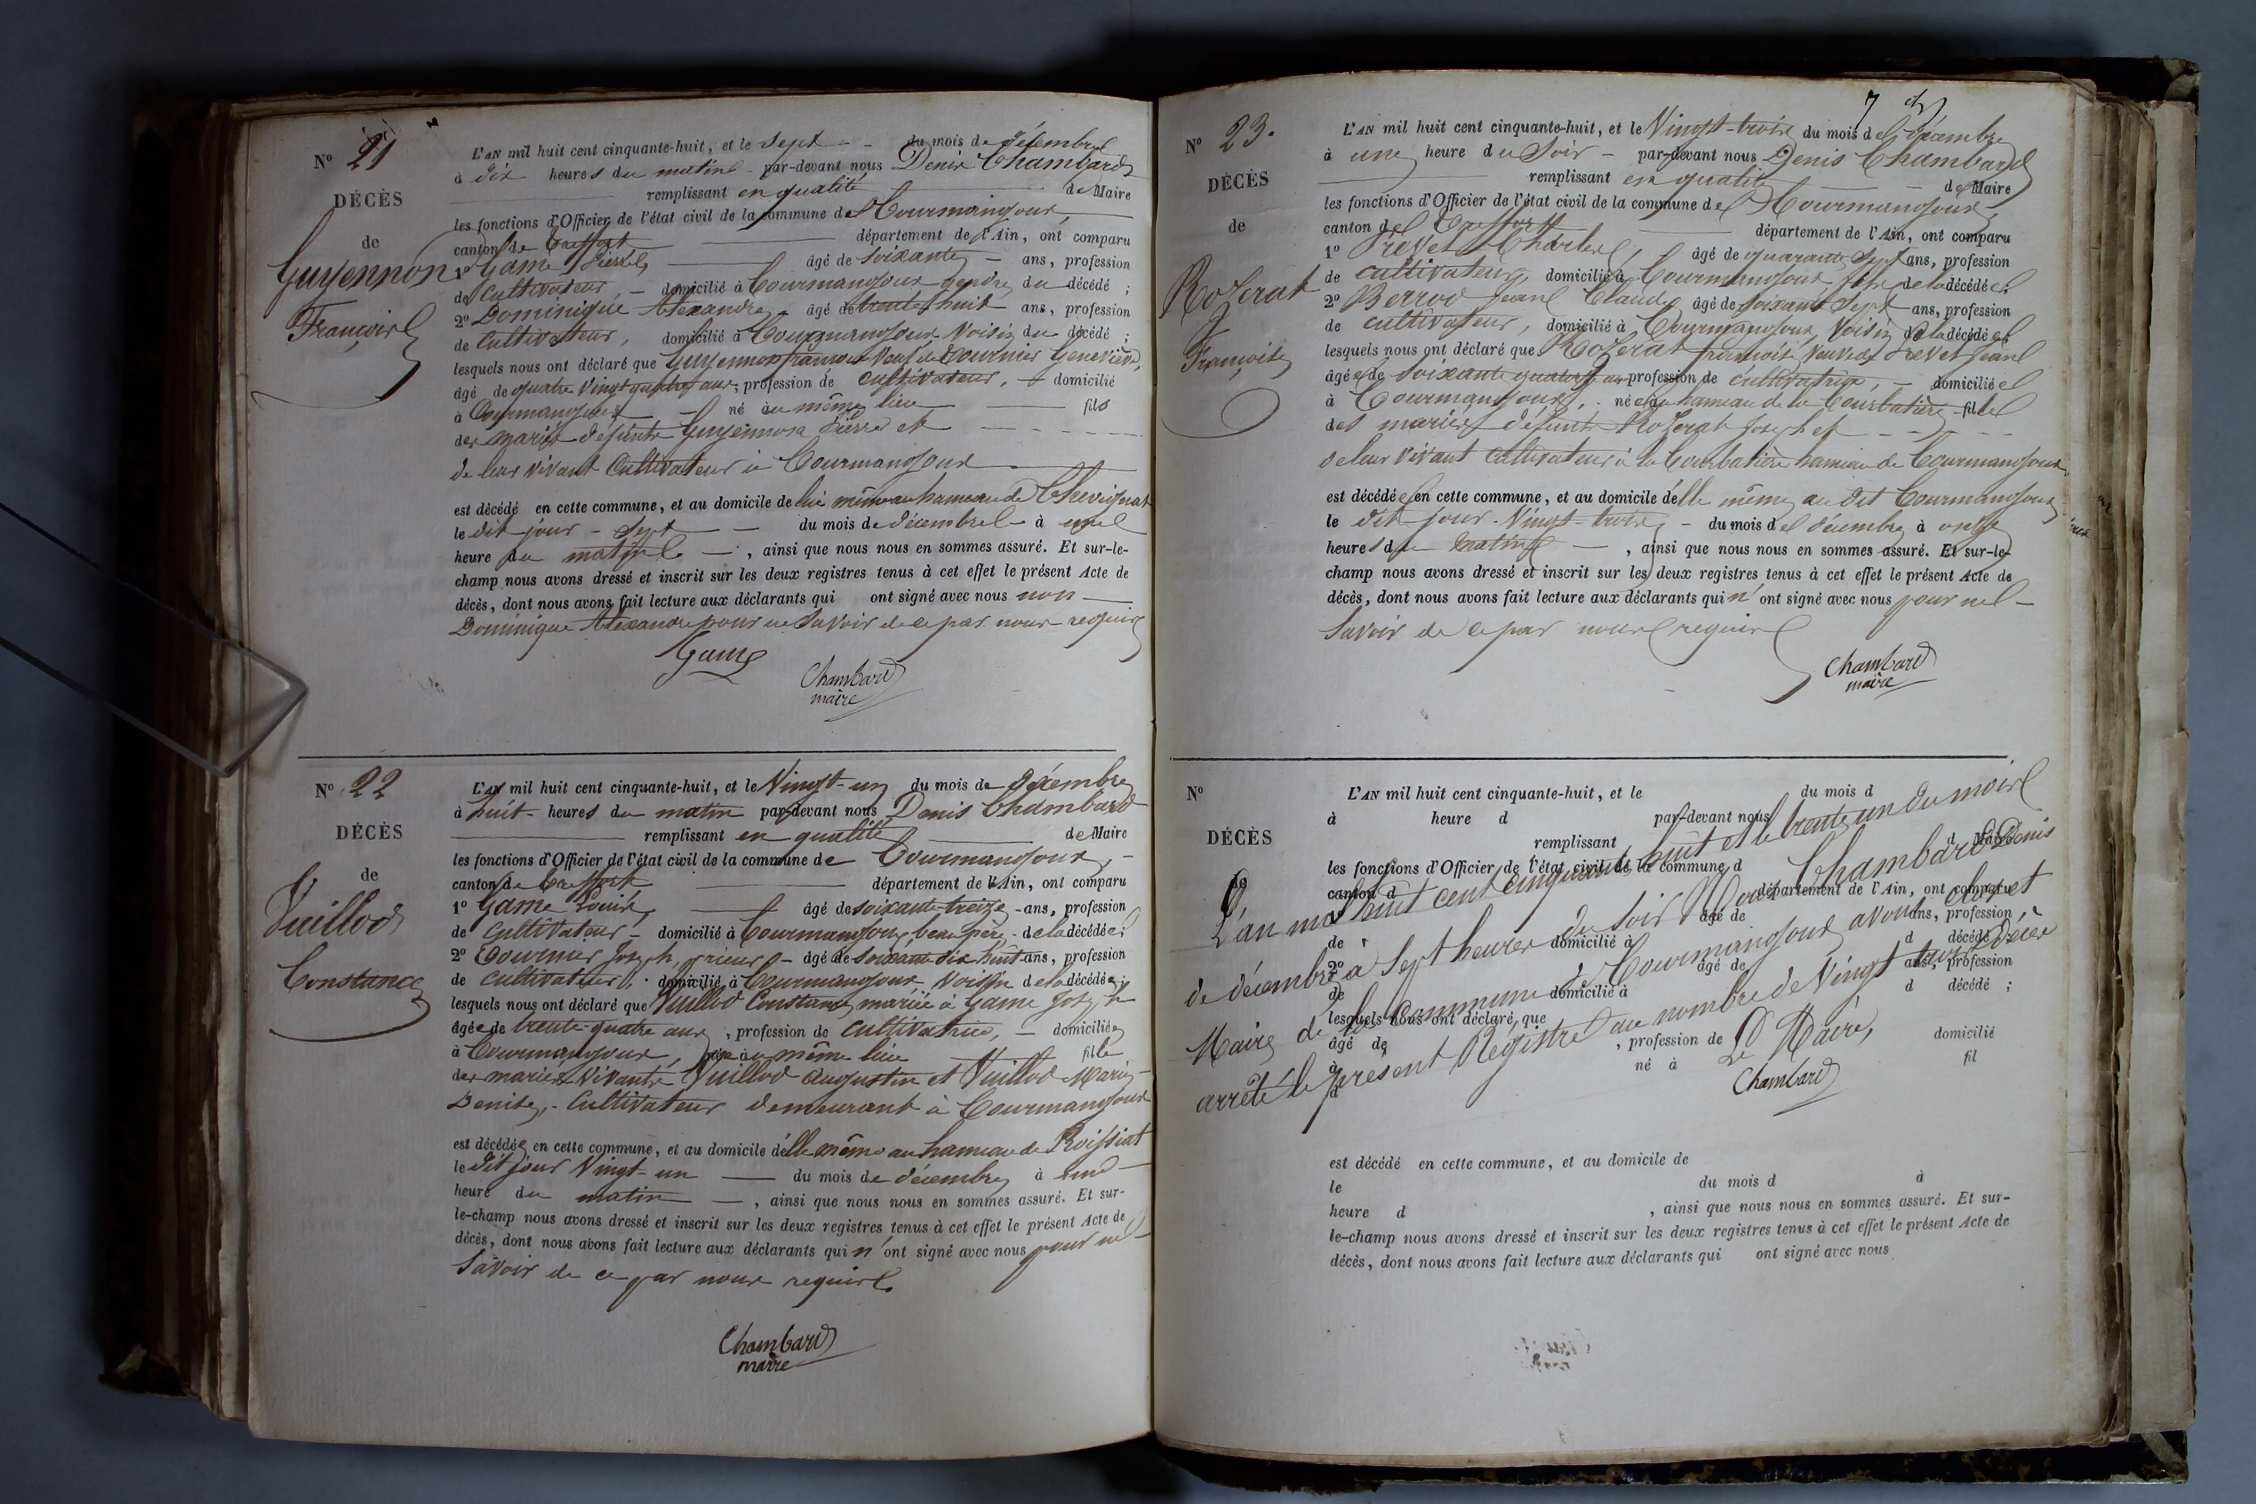 Nº 21
DÉCÈS
de
Guyennon
François
L'AN mil huit cent cinquante-huit, et le sept du mois de décembre
à dix heures du matin par-devant nous Denis Chambard
remplissant en qualité de Maire
les fonctions d'Officier de l'état civil de la commune de Courmangoux
canton de Treffort département de l'Ain, ont comparu
1º Game Pierre âgé de soixante ans, profession
de cultivateur, domicilié à Courmangoux gendre du décédé ;
2º Dominique Alexandre âgé de trente huit ans, profession
de cultivateur, domicilié à Courmangoux Voisin du décédé ;
lesquels nous ont déclaré que Guyennon françois Veuf de Tournier Geneviève,
âgé de quatre Vingt quatre ans, profession de cultivateur, domicilié
à Courmangoux né au même lieu fils
des mariés défunts Guyennon Pierre et
de leur vivant Cultivateur à Courmangoux
est décédé en cette commune, et au domicile de lui même au hameau de Chevignat
le dit jour sept du mois de décembre à une
heure du matin , ainsi que nous nous en sommes assuré. Et sur-le-
champ nous avons dressé et inscrit sur les deux registres tenus à cet effet le présent Acte de
décès, dont nous avons fait lecture aux déclarants qui ont signé avec nous non
Dominique Alexandre pour ne Savoir de ce par nous requis
Game
Chambard
maire
Nº 22
DÉCÈS
de
Vuillod
Constance
L'AN mil huit cent cinquante-huit, et le Vingt-un du mois de décembre
à huit heures du matin par-devant nous Denis Chambard
remplissant en qualité de Maire
les fonctions d'Officier de l'état civil de la commune de Courmangoux,
canton de Treffort département de l'Ain, ont comparu
1º Game Louis âgé de soixante-treize ans, profession
de cultivateur domicilié à Courmangoux, beau père de la décédée ;
2º Tournier Joseph, âgé de soixante dix huit ans, profession
de cultivateur, domicilié à Courmangoux Voisin de la décédée ;
lesquels nous ont déclaré que Vuillod Constance mariée à Game Joseph
âgée de trente-quatre ans, profession de cultivatrice, domiciliée
à Courmangoux, née au même lieu fille
des mariés Vivants Vuillod Augustin et Vuillod Marie
Denise, Cultivateur demeurant à Courmangoux
est décédée en cette commune, et au domicile d'elle même au hameau de Roissiat
le dit jour Vingt-un du mois de décembre à une
heure du matin , ainsi que nous nous en sommes assuré. Et sur-
le-champ nous avons dressé et inscrit sur les deux registres tenus à cet effet le présent Acte de
décès, dont nous avons fait lecture aux déclarants qui n'ont signé avec nous pour ne
Savoir de ce par nous requis
Chambard
maire
7
Nº 23.
DÉCÈS
de
Rozerat
Françoise
L'AN mil huit cent cinquante-huit, et le Vingt-trois du mois de décembre
à une heure du Soir par-devant nous Denis Chambard
remplissant en qualité de Maire
les fonctions d'Officier de l'état civil de la commune de Courmangoux
canton de Treffort département de l'Ain, ont comparu
1º Prévet Charles, âgé de quarante sept ans, profession
de cultivateur, domicilié à Courmangoux fils de la décédée ;
2º Berrod Jean Claude âgé de soixante sept ans, profession
de cultivateur, domicilié à Courmangoux, Voisin de la décédée
lesquels nous ont déclaré que Rozerat françoise Veuve de Prevet Jean
âgée de soixante quatorze ans profession de cultivatrice, domiciliée
à Courmangoux, née au hameau de la Courbatière fille
des mariés défunts Rozerat Joseph et
de leur vivant cultivateur à la Courbatière hameau de Courmangoux,
est décédée en cette commune, et au domicile d'elle même au dit Courmangoux
le dit jour Vingt-trois du mois de décembre à onze
heures du matin , ainsi que nous nous en sommes assuré. Et sur-le-
champ nous avons dressé et inscrit sur les deux registres tenus à cet effet le présent Acte de
décès, dont nous avons fait lecture aux déclarants qui n'ont signé avec nous pour ne
Savoir de ce par nous requis
Chambard
maire
Nº
DÉCÈS
de
L'AN mil huit cent cinquante-huit, et le du mois d
à heure d par-devant nous
remplissant d Maire
les fonctions d'Officier de l'état civil de la commune d
canton d département de l'Ain, ont comparu
1º âgé de ans, profession
de domicilié à d décédé ;
2º âgé de ans, profession
de domicilié à d décédé ;
lesquels nous ont déclaré que
âgé de , profession de domicilié
à né à fil
d
L'an mil huit cent cinquante huit et le trente un du mois
de décembre à Sept heures du soir Nous Chambard Denis
Maire de la Commune de Courmangoux avons clos et
arrêté le présent Registre au nombre de Vingt trois Décès
Le Maire,
Chambard
est décédé en cette commune, et au domicile de
le du mois d à
heure d , ainsi que nous nous en sommes assuré. Et sur-
le-champ nous avons dressé et inscrit sur les deux registres tenus à cet effet le présent Acte de
décès, dont nous avons fait lecture aux déclarants qui ont signé avec nous